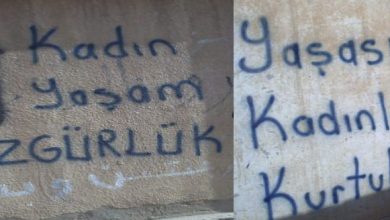 Kadın
Yaşam
ZGÜRLÜK
Yaşas
Kadınl
Kurtul